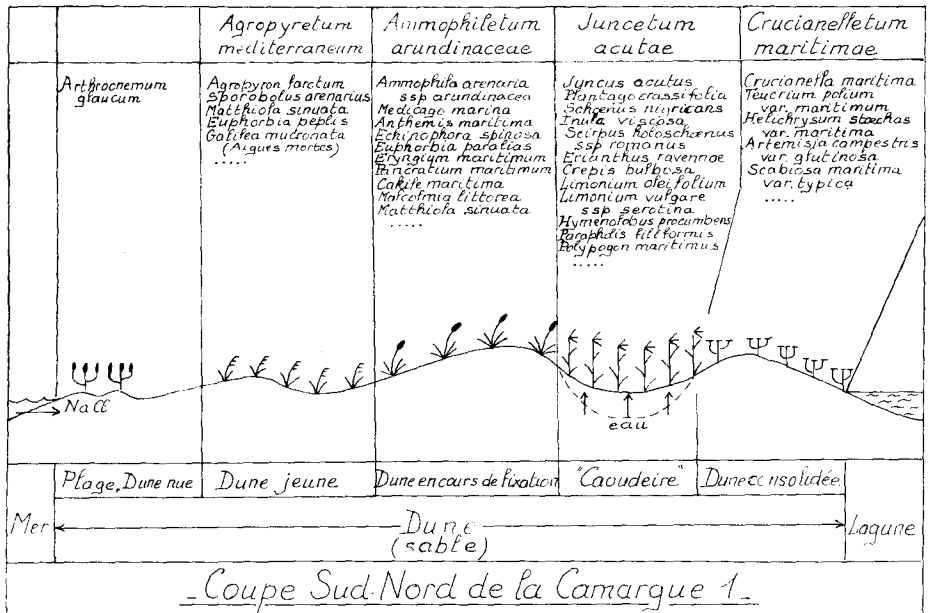 Agropyretum
mediterraneum
Ammophiletum
arundinaceae
Juncetum
acutae
Crucianelletum
maritimae
Arthrocnemum
glaucum
Agropyron farctum
Sporobolus arenarius
Matthiola sinuata
Euphorbia peplis
Galilea mucronata
(Aigues mortes)
.....
Ammophila arenaria
ssp arundinacea
Medicago marina
Anthemis maritima
Echinophora spinosa
Euphorbia paralias
Eryngium maritimum
Pancratium maritimum
Cakile maritima
Malcolmia littorea
Matthiola sinuata
.....
Juncus acutus
Plantago crassifolia
Schoenus nigricans
Inula viscosa
Scirpus holoschœnus
ssp romanus
Erianthus ravennae
Crepis bulbosa
Limonium oleifolium
Limonium vulgare
ssp serotina
Hymenolobus procumbens
Parapholis filiformis
Polypogon maritimus
.....
Crucianella maritima
Teucrium polium
var. maritimum
Helichrysum stœchas
var. maritima
Artemisia campestris
var. glutinosa
Scabiosa maritima
var. typica
.....
NaCl
eau
Plage, Dune nue
Dune jeune
Dune en cours de fixation
"Caoudeire"
Dune consolidée
Mer
Dune
(sable)
Lagune
_Coupe Sud-Nord de la Camargue 1_